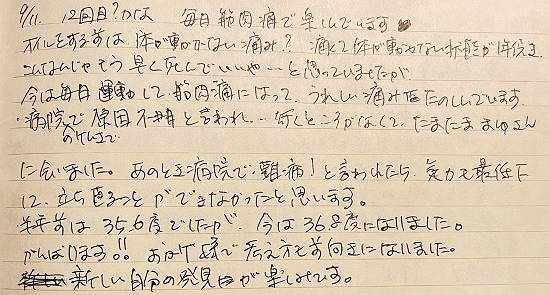 9/11 12回目?かな 毎日筋肉痛で楽しんでいます
オイルをする前は、体が動かない痛み? 痛くて体が動かせない状態が1年続き
こんなんじゃもう早く死んでいいや…と思っていましたが
今は毎日運動して筋肉痛になって、うれしい痛みをたのしんでいます。
病院で原因不明と言われ… 行くところがなくて、たまたままゆさん
のブログで
に会いました。あのとき病院で難病!と言われたら、気力も最低下
に、立ち直ることができなかったと思います。
半年前は35.6度でしたが、今は36.8度になりました。
がんばります!! おかげ様で考え方も前向きになりました。
新しい自分の発見が楽しみです。